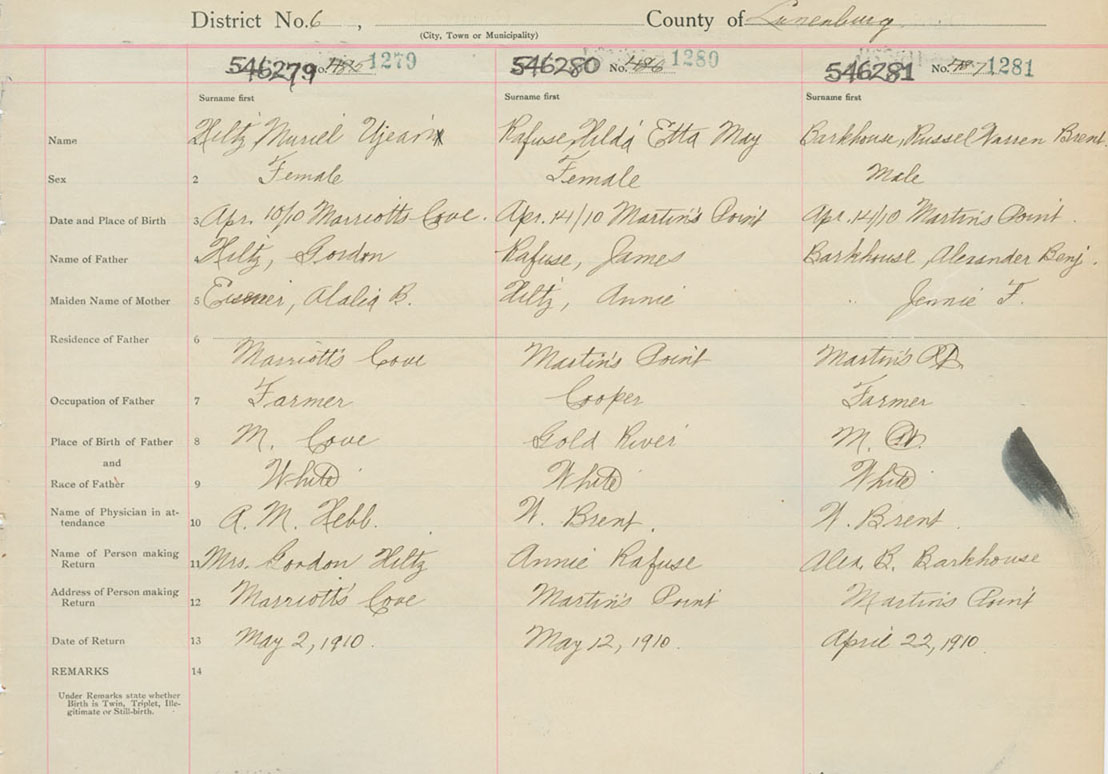 District No. 6 , County of Lunenburg
(City, Town or Municipality)
546279 No. 1279 546280 No. 1280 546281 No. 1281
Surname first Surname first Surname first
Name Hiltz, Muriel Rafuse, Hilda Etta May Barkhouse, Russel Warren Brent.
Sex 2 Female Female Male
Date and Place of Birth 3 Apr. 10/10 Marriotts Cove. Apr. 14/10 Martin's Point Apr. 14/10 Martin's Point.
Name of Father 4 Hiltz, Gordon Rafuse, James Barkhouse, Alexander Benj.
Maiden Name of Mother 5 B. Hiltz, Annie " Jennie F.
Residence of Father 6
Marriott's Cove Martin's Point Martin's Pt.
Occupation of Father 7 Farmer Cooper Farmer
Place of Birth of Father 8 M. Cove Gold River M. Pt.
and
Race of Father 9 White White White
Name of Physician in at-
tendance 10 A. M. Hebb. W. Brent. W. Brent.
Name of Person making
Return 11 Mrs. Gordon Hiltz Annie Rafuse Alex. B. Barkhouse
Address of Person making
Return 12 Marriott's Cove Martin's Point Martin's Point
Date of Return 13 May 2, 1910. May 12, 1910. April 22, 1910.
REMARKS 14
Under Remarks state whether
Birth is Twin, Triplet, Ille-
gitimate or Still-birth.